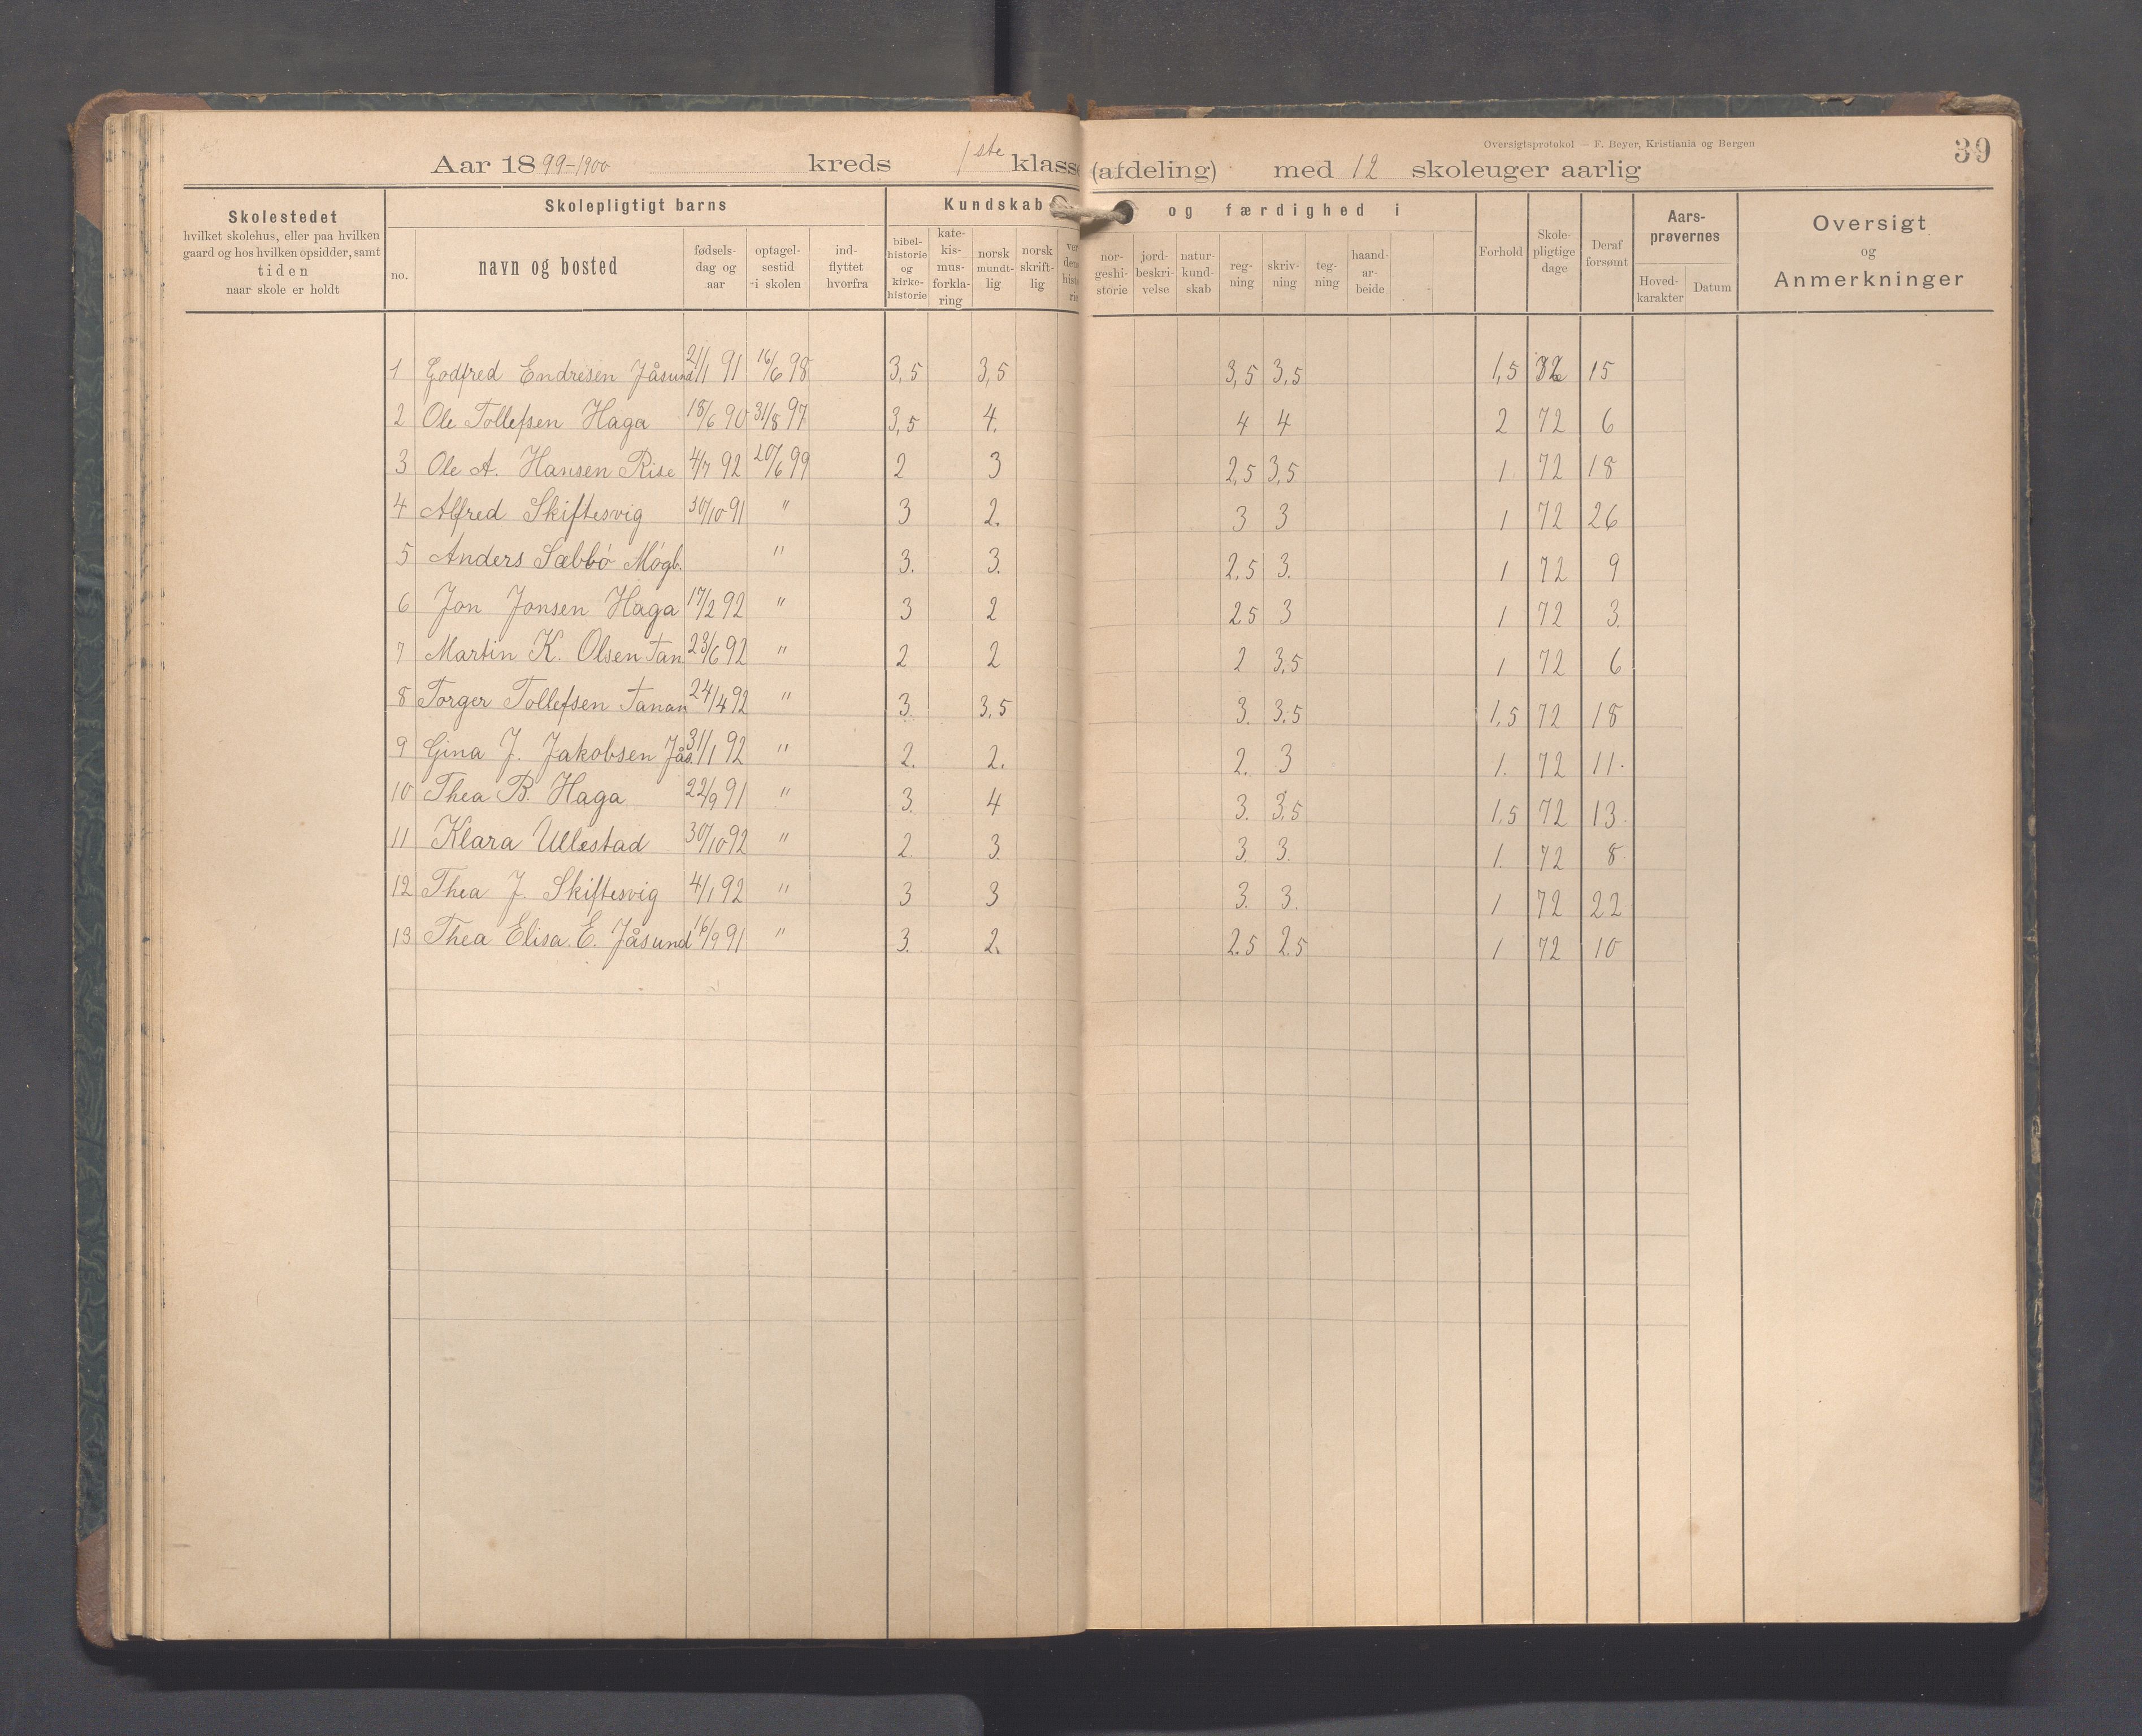 Oversigtsprotokol — F. Beyer, Kristiania og Bergen
39
Aar 1899-1900 kreds 1ste klasse (afdeling) med 12 skoleuger aarlig
Skolestedet
hvilket skolehus, eller paa hvilken
gaard og hos hvilken opsidder, samt
tiden
naar skole er holdt
Skolepligtigt barns
no.
navn og bosted
fødsels-
dag og
aar
optagel-
sestid
i skolen
ind-
flyttet
hvorfra
Kundskab og færdighed i
bibel-
historie
og
kirke-
historie
kate-
kis-
mus-
forkla-
ring
norsk
mundt-
lig
norsk
skrift-
lig
nor-
geshi-
storie
jord-
beskri-
velse
natur-
kund-
skab
reg-
ning
skriv-
ning
teg-
ning
haand-
ar-
beide
Forhold
Skole-
pligtige
dage
Deraf
forsømt
Aars-
prøvernes
Hoved-
karakter
Datum
Oversigt
og
Anmerkninger
1 Godfred Endresen Jåsund 21/1 91 16/6 98 3,5 3,5 3,5 3,5 1,5 15
2 Ole Tollefsen Haga 18/6 90 31/8 97 3,5 4. 4 4 2 72 6
3 Ole A. Hansen Rise 4/7 92 20/6 99 2 3 2,5 3,5 1 72 18
4 Alfred Skiftesvig 30/10 91 " 3 2. 3 3 1 72 26
5 Anders Sæbbö Mögb. " 3. 3. 2,5 3. 1 72 9
6 Jon Jonsen Haga 17/2 92 " 3 2 2,5 3 1 72 3.
7 Martin K. Olsen Tan 23/6 92 " 2 2 2 3,5 1 72 6
8 Torger Tollefsen Tanan 24/4 92 " 3. 3,5 3. 3,5 1,5 72 18
9 Gina J. Jakobsen Jås. 31/1 92 " 2. 2. 2. 3 1. 72 11.
10 Thea B. Haga 22/9 91 " 3. 4 3. 3,5 1,5 72 13.
11 Klara Ullestad 30/10 92 " 2. 3. 3. 3. 1. 72 8.
12 Thea J. Skiftesvig 4/1 92 " 3 3 3. 3. 1 72 22
13 Thea Elisa. E. Jåsund 16/9 91 " 3. 2. 2,5 2,5 1 72 10